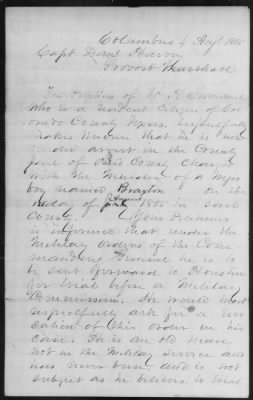 Columbus Augt 1865
Capt
Provost Marshall
The Petition of W. R.
who is a resident Citizen of Col
orado County Texas respectfully
states that he is now
under arrest in the County
jail of said County charged
with the Murder of a negro
boy named Braxton on the
day of August 1865 in said
County. Your Petitioner
is informed that under the
Military orders of the Com
manding General he is to
be sent forward to Houston
for trial before a Military
Commission. He would most
respectfully ask for a
of this order in his
Case. He is an old man
not in the Military service and
has never been, and is not
subject as he believes to trial